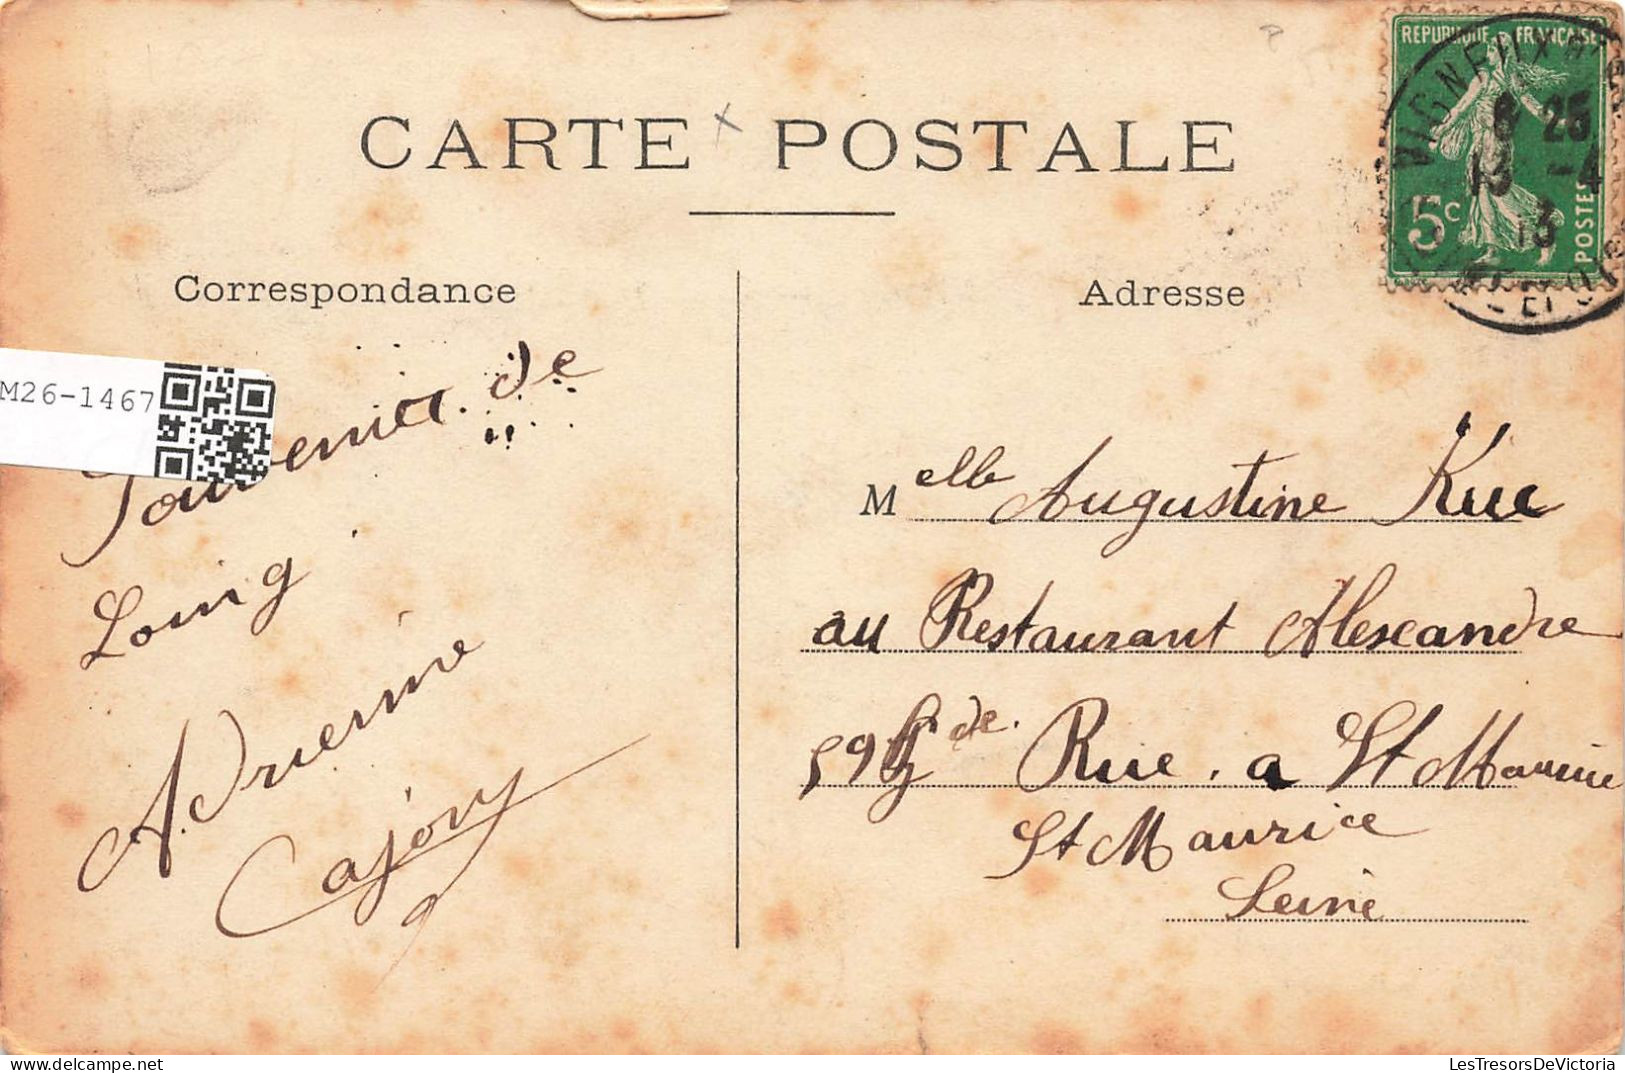 CARTE POSTALE
REPUBLIQUE FRANÇAISE
5c
POSTES
VIGNEUX
8 25
13 -4
13
Correspondance
Adresse
M26-1467
Souvenir de
Loing
Adrienne
Cajory
Melle Augustine Kuc
au Restaurant Alexandre
59 Gde. Rue. a St Maurice
St Maurice
Seine
LesTresorsDeVictoria